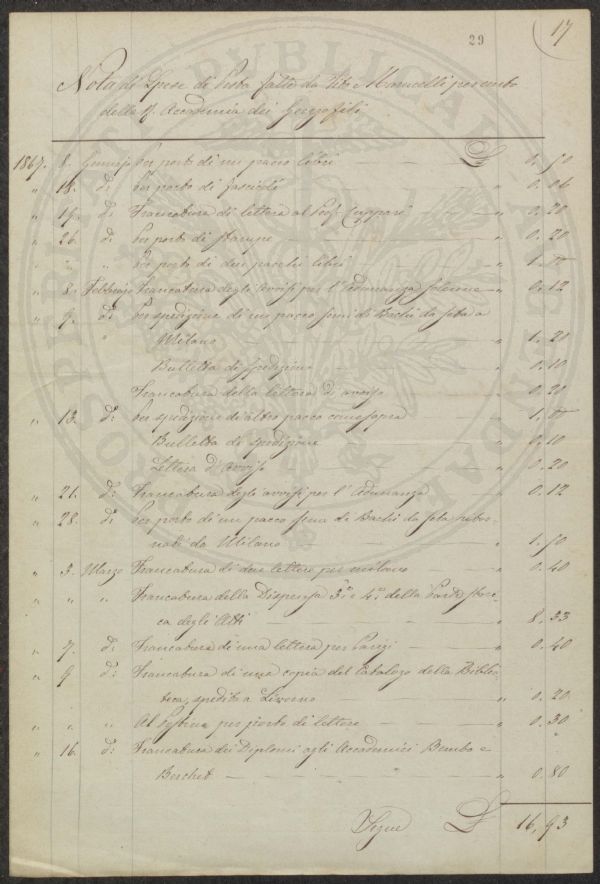 29
17
Nota di Spese di Posta fatte da Vito Manucelli per conto
della R. Accademia dei Georgofili
1867. 8. Gennajo Per porto di un pacco libri — £ 0.50
" 18. d: Per porto di fascicoli — " 0.06
" 19. d: Francatura di lettera al Prof. Cuppari — " 0.20
" 26. d: Per porto di Stampe — " 0.20
" " Per porto di due pacchi libri — " 1.—
" 8. Febbrajo Francatura degli avvisi per l'Adunanza Solenne — " 0.12
" 9. d: Per spedizione di un pacco semi di Bachi da Seta a
" Milano — " 1.20
Bulletta di spedizione — " 0.10
Francatura della lettera d'avviso — " 0.20
" 13. d: Per spedizione di altro pacco come sopra — " 1.—
Bulletta di spedizione — " 0.10
Lettera d'avviso — " 0.20
" 21. d: Francatura degli avvisi per l'Adunanza — " 0.12
" 28. d: Per porto di un pacco seme di Bachi da Seta ritor-
nati da Milano — " 1.50
" 3. Marzo Francatura di due lettere per Milano — " 0.40
" " " Francatura della Dispensa 3.a e 4.a della Parte Stori-
ca degli Atti — " 8.33
" 7. d: Francatura di una lettera per Parigi — " 0.40
" 9 d: Francatura di una copia del Catalogo della Biblio-
teca, spedito a Livorno — " 0.20
" " " Al per porto di lettere — " 0.30
" 16. d: Francatura dei Diplomi agli Accademici Bembo e
Berchet — " 0.80
Segue £ 16,93
PUBLICAE
PROSPERITATIS